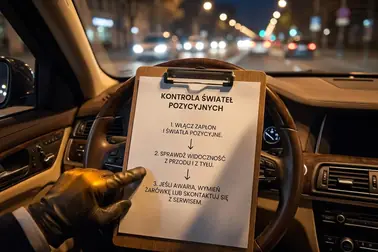 KONTROLA ŚWIATEŁ
POZYCYJNYCH
1. WŁĄCZ ZAPŁON
I ŚWIATŁA POZYCYJNE.
2. SPRAWDŹ WIDOCZNOŚĆ
Z PRZODU I Z TYŁU.
3. JEŚLI AWARIA, WYMIEŃ
ŻARÓWKĘ LUB SKONTAKTUJ SIĘ
Z SERWISEM.